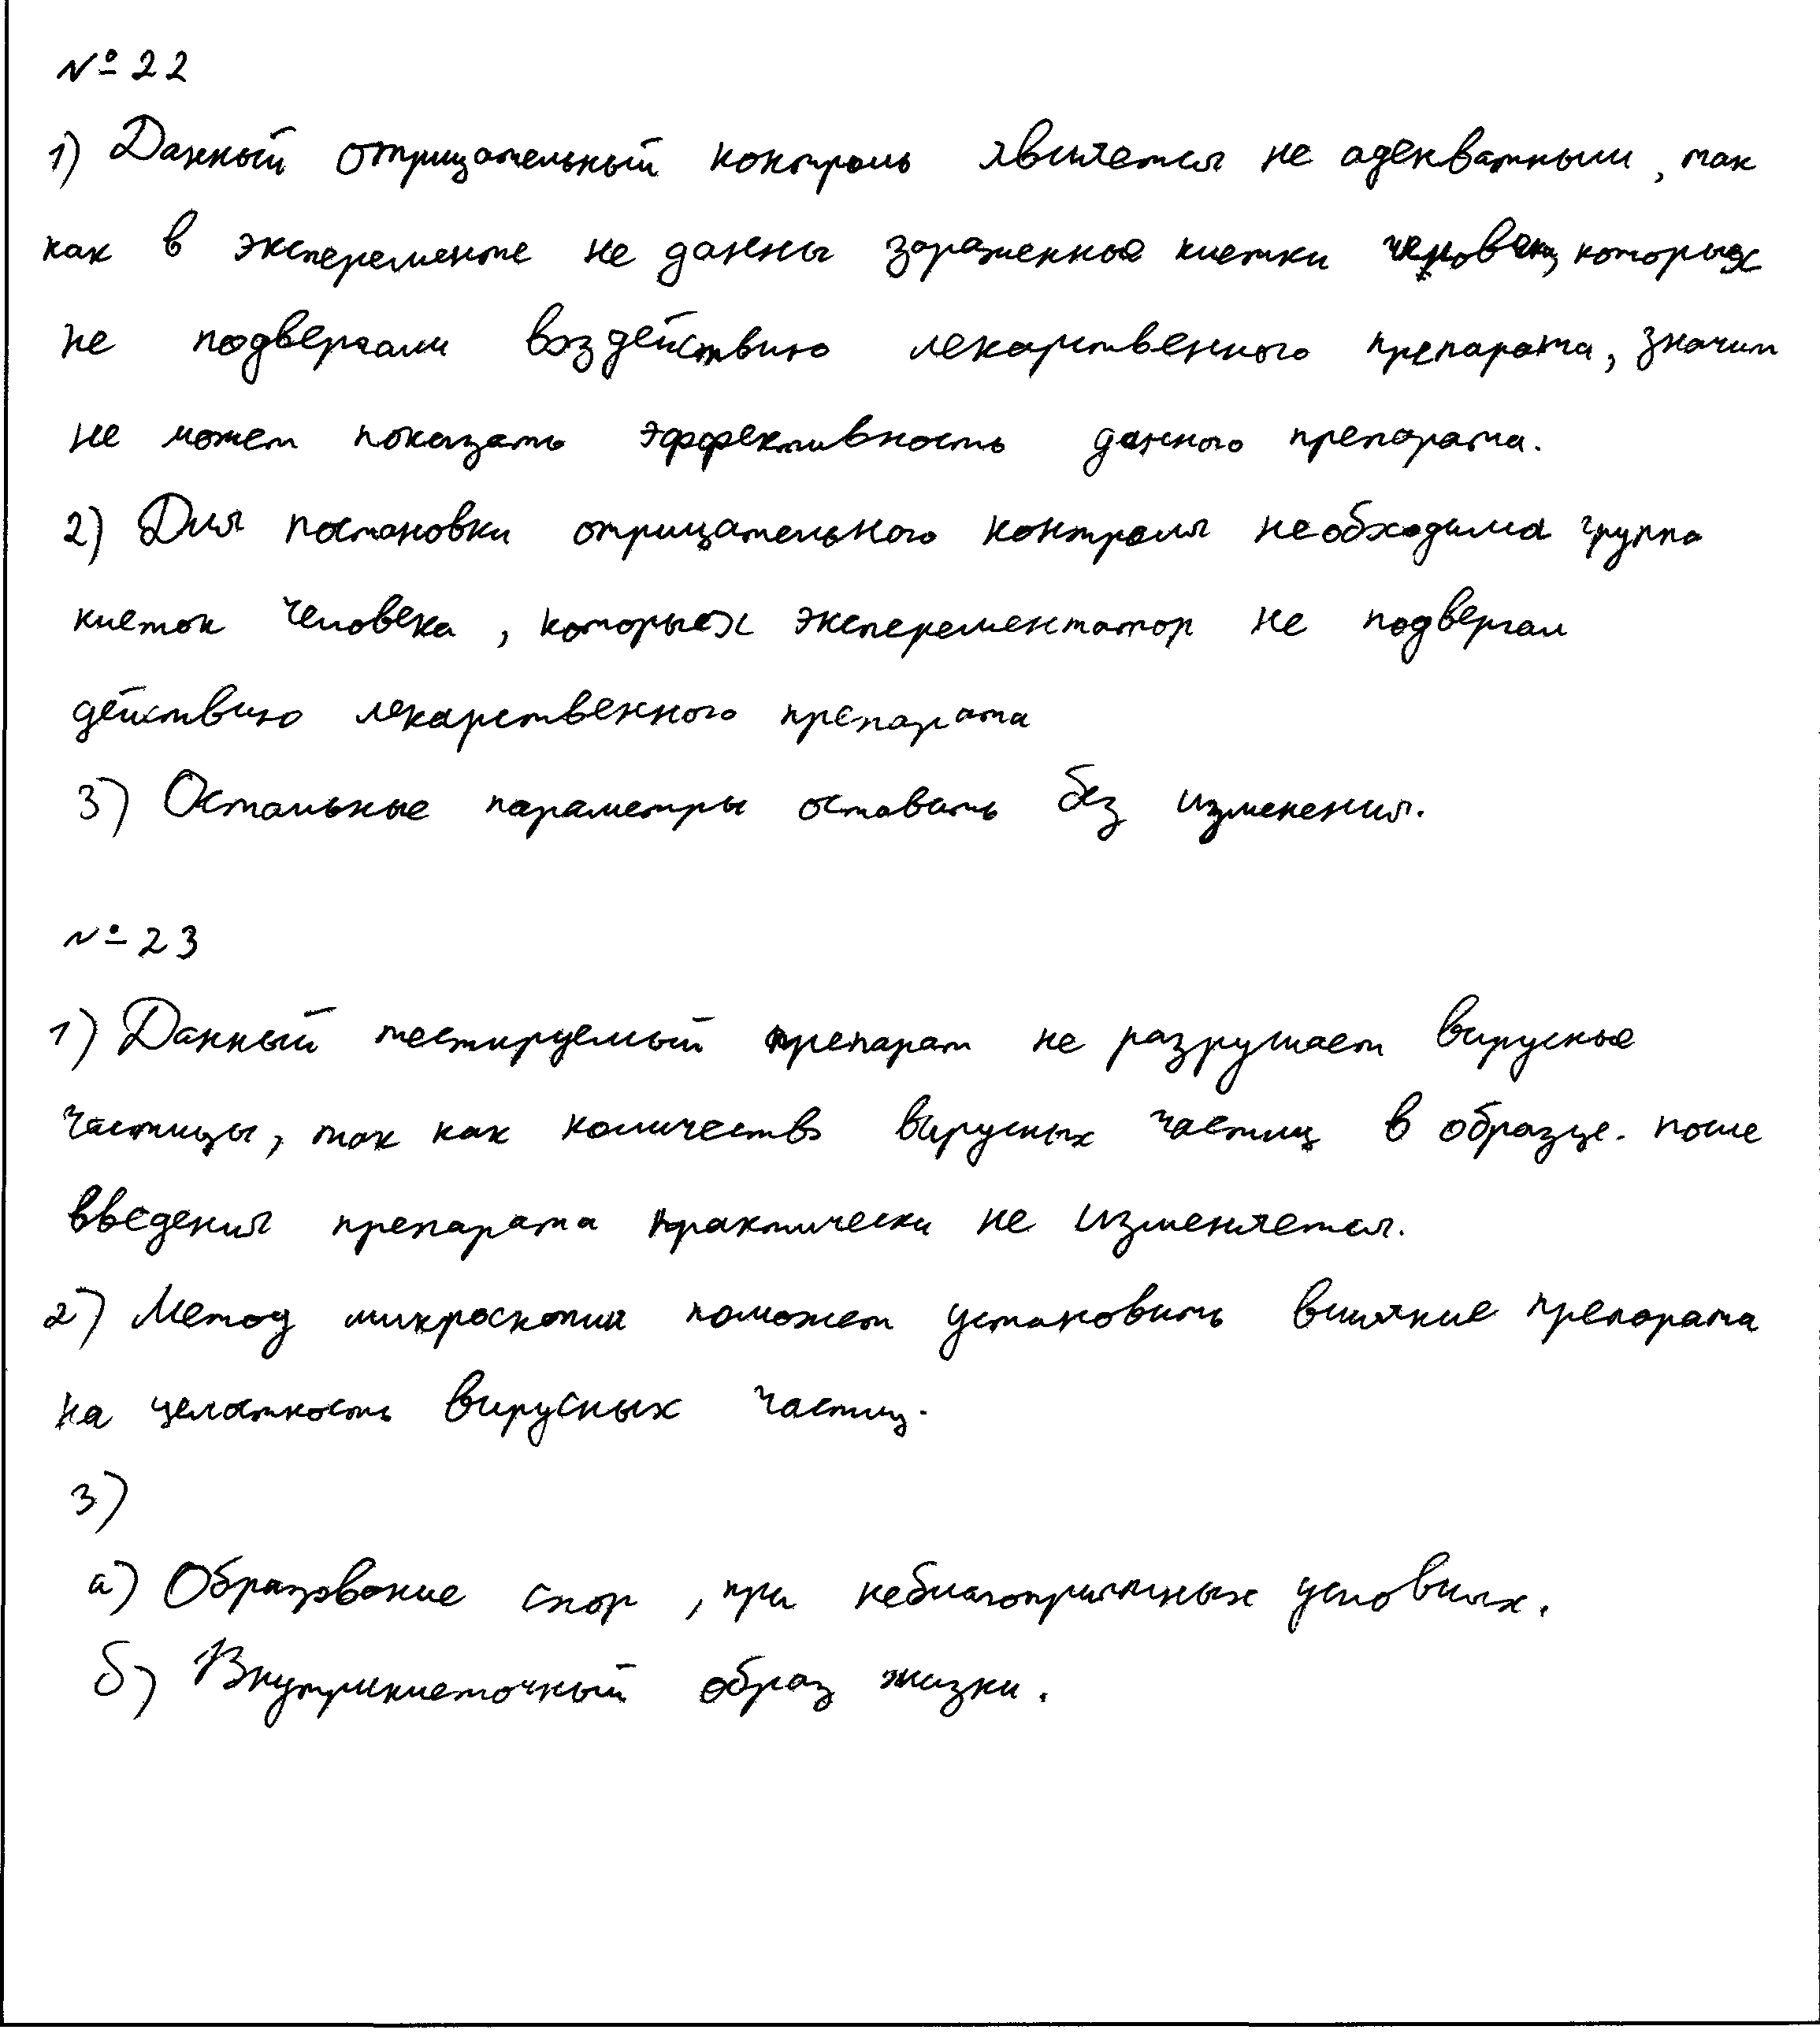 №22
1) Данный отрицательный контроль является не адекватным, так
как в эксперементе не данны зараженные клетки человека, которых
не подвергали воздействию лекарственного препарата, значит
не может показать эффективность данного препарата.
2) Для постановки отрицательного контроля необходима группа
клеток человека, которых эксперементатор не подвергал
действию лекарственного препарата
3) Остальные параметры оставить без изменения.
№23
1) Данный тестируемый препарат не разрушает вирусные
частицы, так как количество вирусных частиц в образце. после
введения препарата практически не изменяется.
2) Метод микроскопии поможет установить влияние препарата
на целостность вирусных частиц.
3)
а) Образование спор, при неблагоприятных условиях.
б) Внутриклеточный образ жизни.